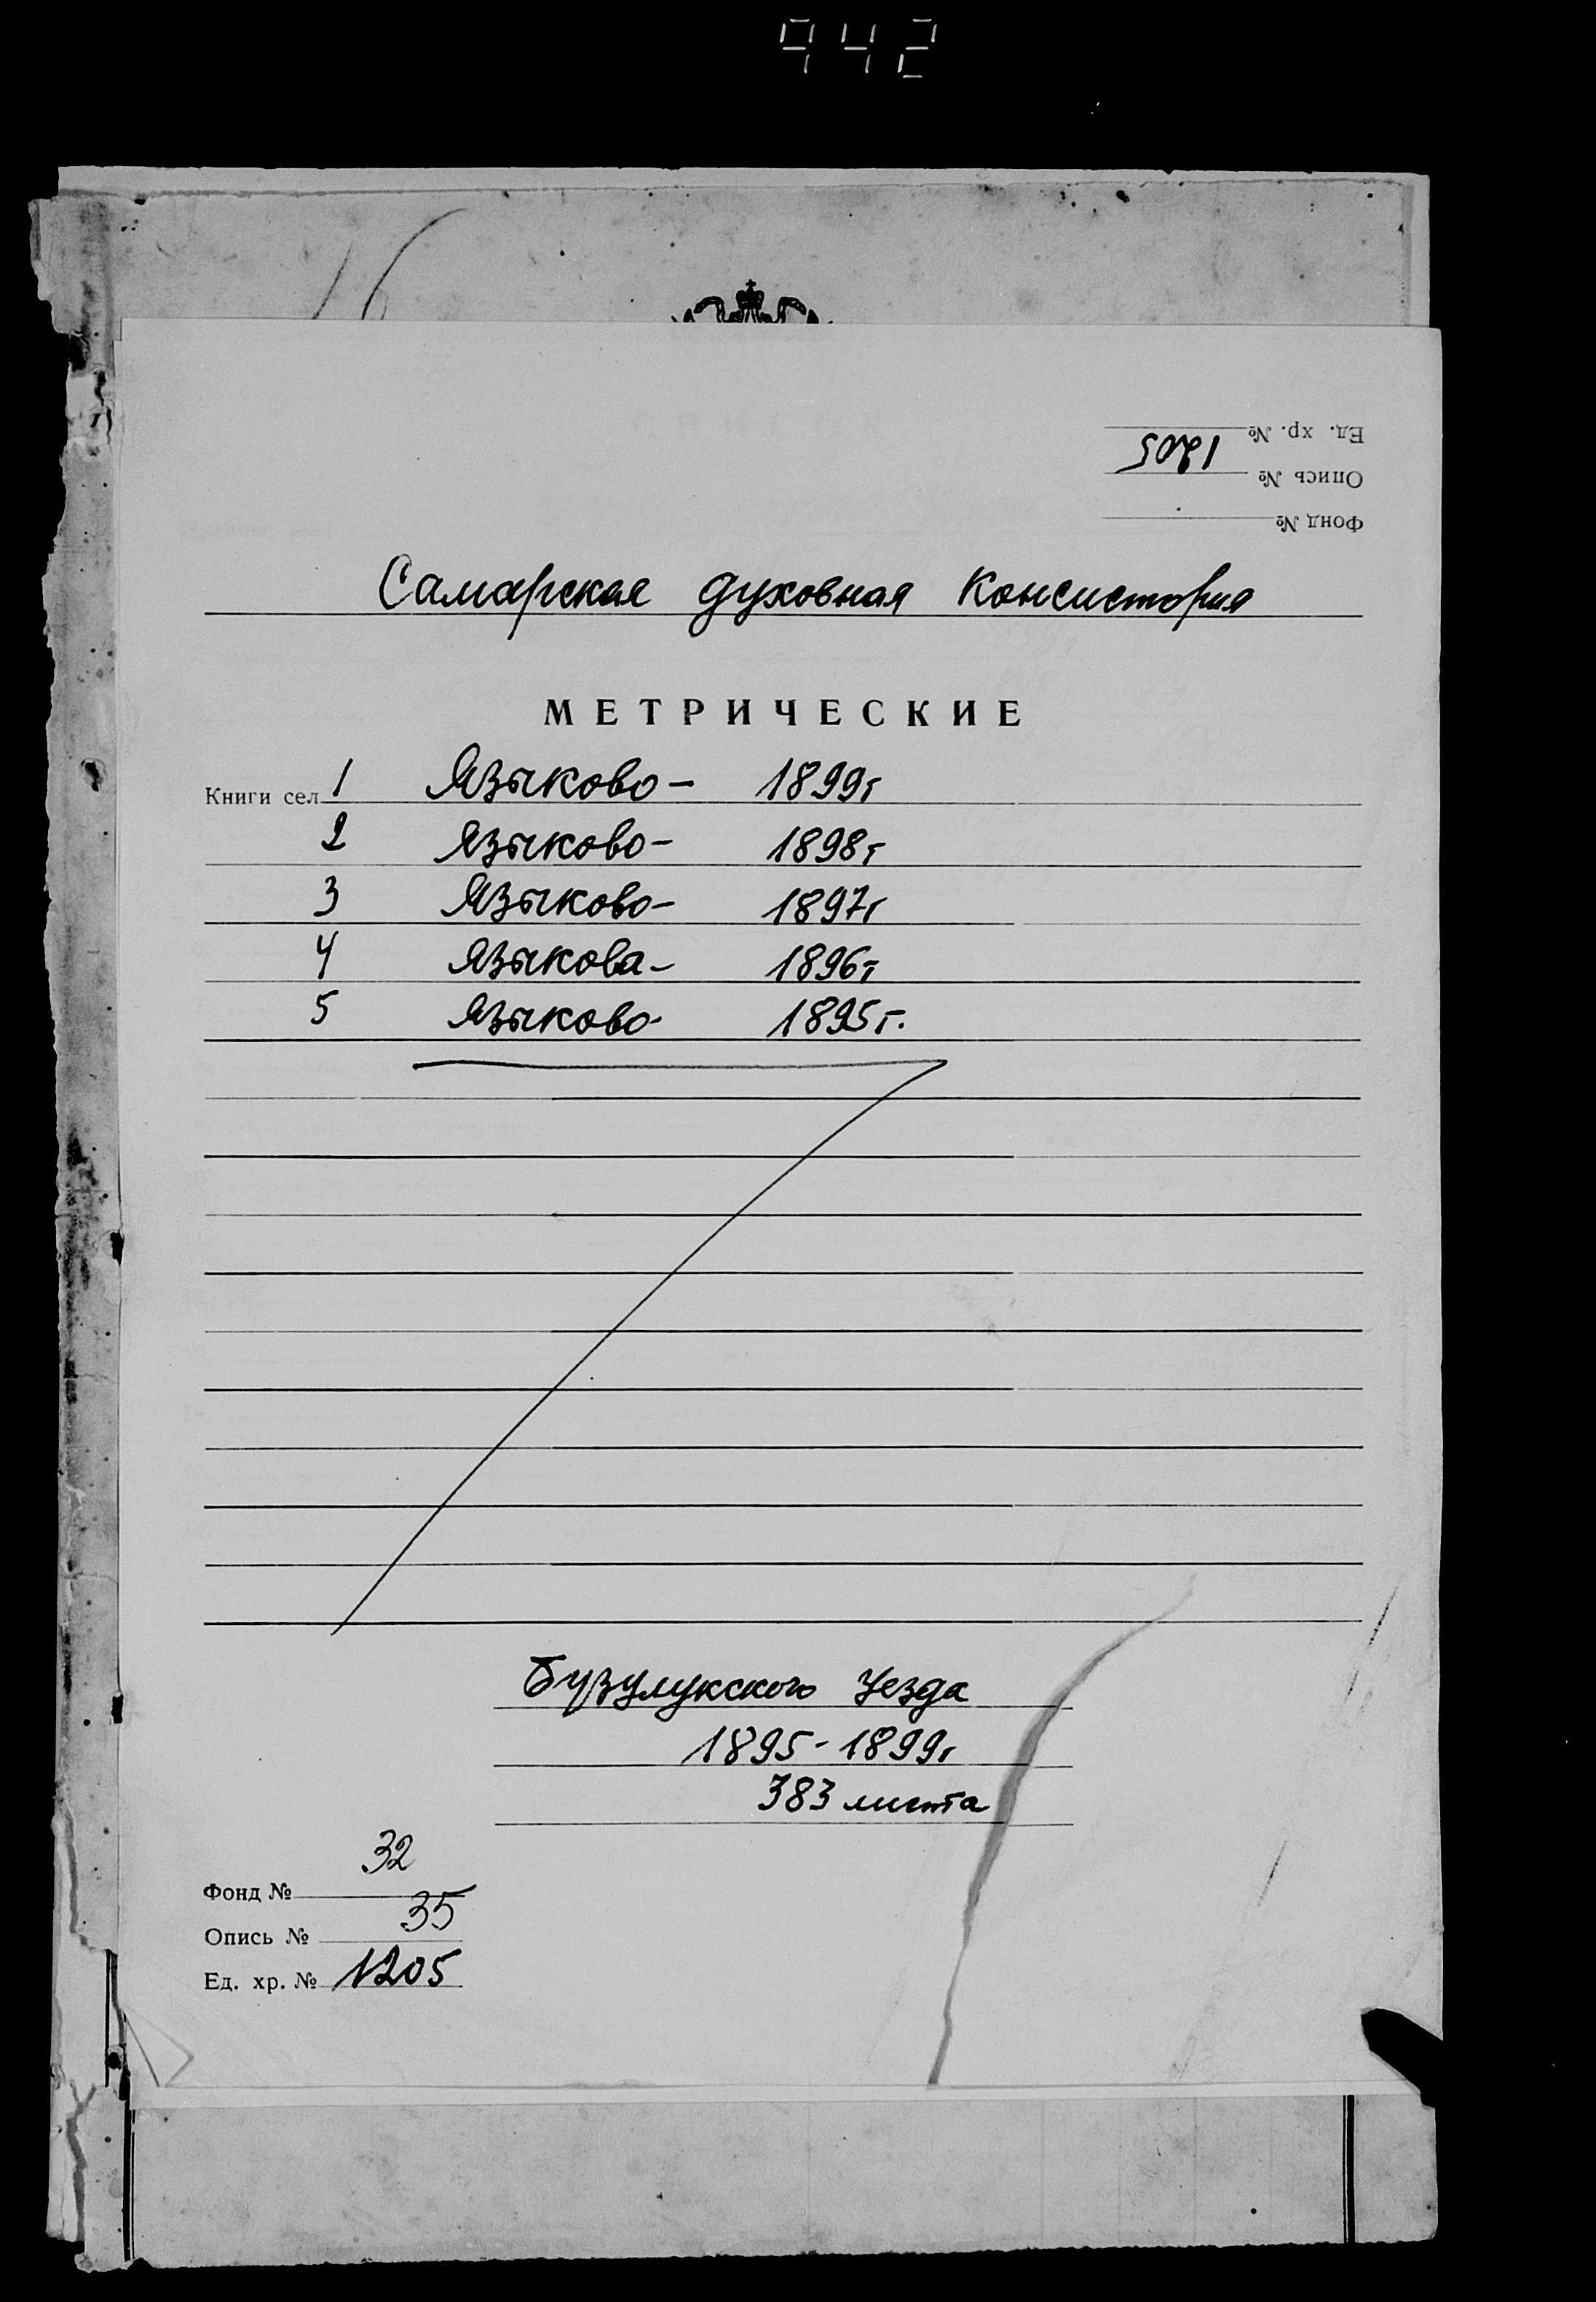 942
Ед. хр. №
Опись № 1205
Фонд №
Самарская духовная Консистория
МЕТРИЧЕСКИЕ
Книги сел 1 Языково - 1899г
2 Языково - 1898г
3 Языково - 1897г
4 Языкова - 1896г
5 Языково - 1895г.
Бузулукского Уезда
1895 - 1899г
383 листа
Фонд № 32
Опись № 35
Ед. хр. № 1205